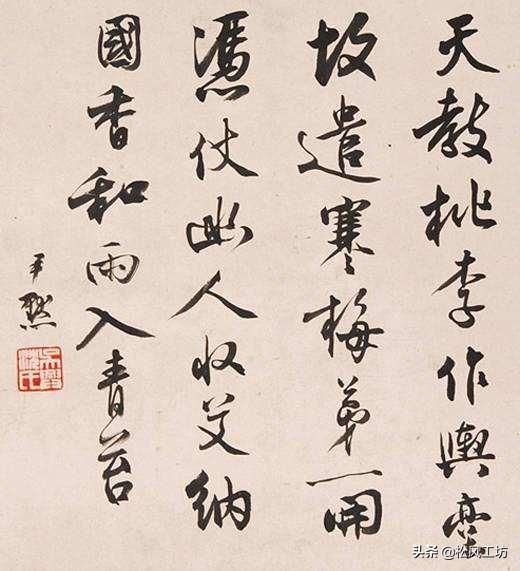 天教桃李作輿臺
故遣寒梅第一開
憑仗幽人收艾納
國香和雨入青苔
尹默
吳興沈氏
头条 @松风工坊